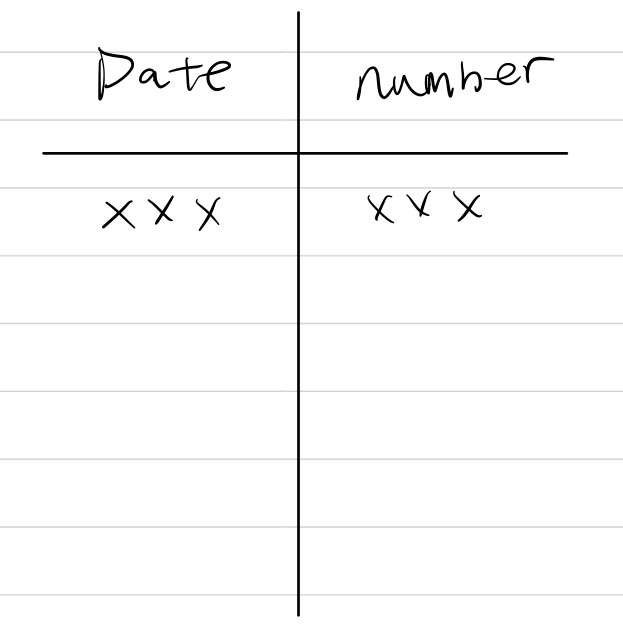 Date number
x x x x x x